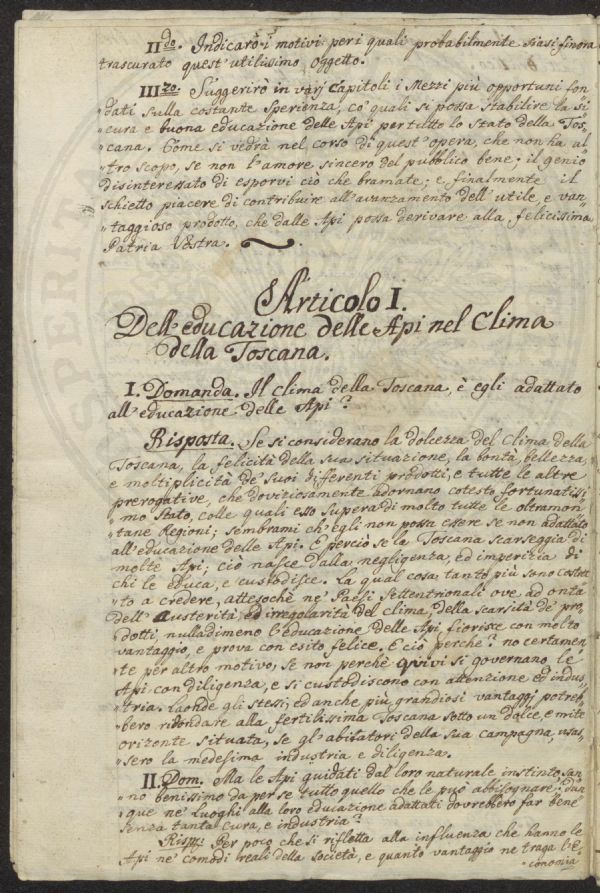 II.do. Indicarò i motivi per i quali probabilmente siasi finora
trascurato quest'utilissimo oggetto.
III.zo. Suggerirò in varj Capitoli i Mezzi più opportuni fon
"dati sulla costante sperienza, co' quali si possa stabilire la si
"cura e buona educazione delle Api per tutto lo Stato della Tos,
"cana. Come si vedrà nel corso di quest'opera, che non ha al
"tro scopo, se non l'amore sincero del pubblico bene; il genio
disinteressato di esporvi ciò che bramate; e finalmente il
schietto piacere di contribuire all'avanzamento dell'utile, e van
"taggioso prodotto, che dalle Api possa derivare alla felicissima
Patria Vostra.
Articolo I.
Dell'educazione delle Api nel Clima
della Toscana.
I. Domanda. Il clima della Toscana, è egli adattato
all'educazione delle Api?
Risposta. Se si considerano la dolcezza del Clima della
Toscana, la felicità della sua situazione, la bontà, bellezza,
e moltiplicità de' suoi differenti prodotti, e tutte le altre
prerogative, che doviziosamente adornano cotesto fortunatissi
"mo Stato, colle quali esso supera di molto tutte le oltramon
"tane Regioni; sembrami ch'egli non possa essere se non adattato
all'educazione delle Api. E perciò se la Toscana scarseggia di
molte Api; ciò nasce dalla negligenza, ed imperizia di
chi le educa, e custodisce. La qual cosa tanto più sono costret
"to a credere, attesochè ne' Paesi Settentrionali ove ad onta
dell'Austerità, ed irregolarità del clima, della scarsità de' pro,
"dotti, nulladimeno l'educazione delle Api fiorisce con molto
vantaggio, e prova con esito felice. E ciò perchè? no certamen
"te per altro motivo, se non perchè quivi si governano le
Api con diligenza, e si custodiscono con attenzione ed indus,
"tria. Laonde gli stessi, ed anche più grandiosi vantaggj potreb,
"bero ridondare alla fertilissima Toscana sotto un dolce, e mite
orizonte situata, se gl'abitatori della sua campagna, usas,
"sero la medesima industria e diligenza.
II. Dom. Ma le Api guidati dal loro naturale instinto, san,
"no benissimo da per se tutto quello che le può abbisognare; dun
"que ne' Luoghi alla loro educazione adattati dovrebbero far bene
senza tanta cura, e industria?
Risp: Per poco che si rifletta alla influenza che hanno le
Api ne' comodi reali della società, e quanto vantaggio ne traga l'E,
"conomia